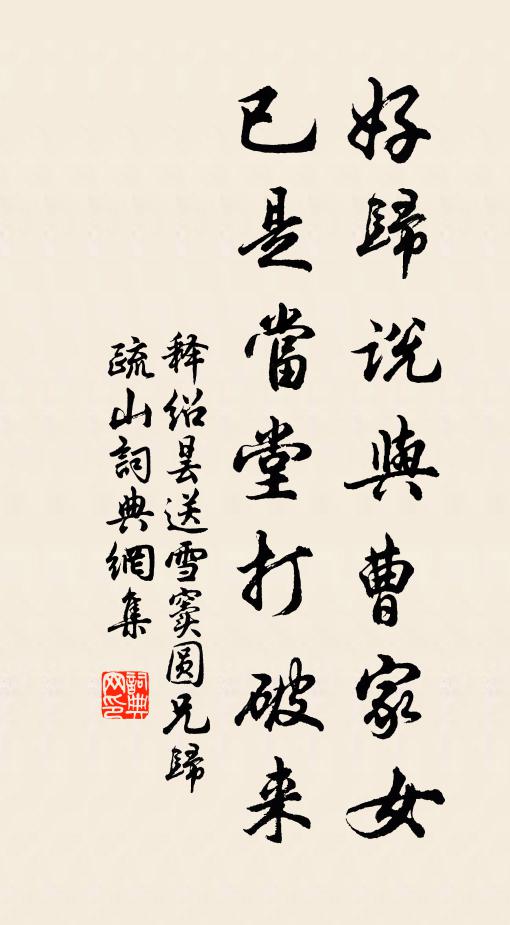 好歸說與曹家女
已是當堂打破来
释绍昙送雪窦圆兄歸
疏山詞典網集
詞典網印